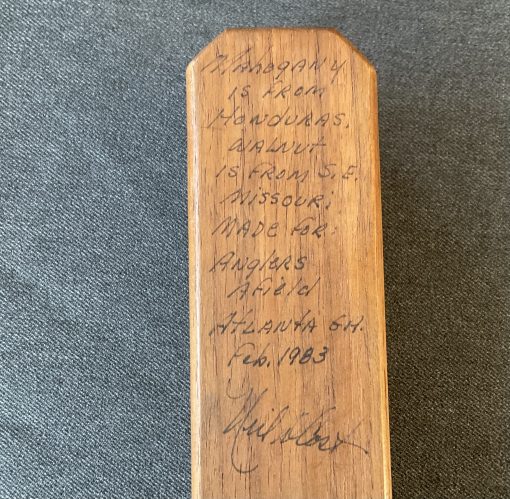 Mahogany
is from
Honduras.
walnut
is from S.E.
Missouri
Made for:
Anglers
Afield
Atlanta GA.
Feb. 1983
Neil Cost